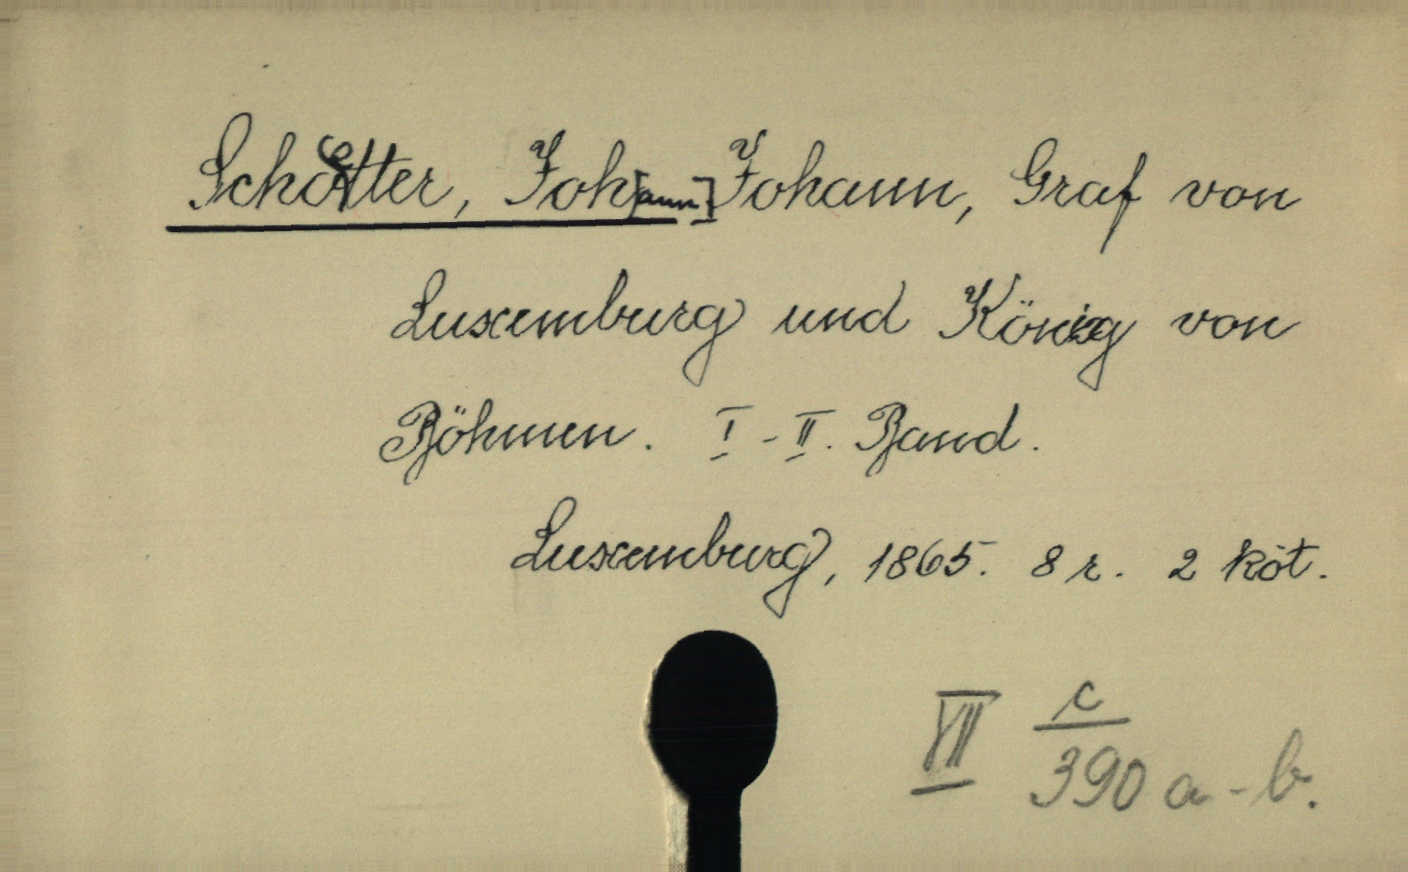 Schötter, Joh[ann] Johann, Graf von
Luxemburg und König von
Böhmen. I-II. Band.
Luxemburg, 1865. 8 r. 2 köt.
VII c/390 a-b.